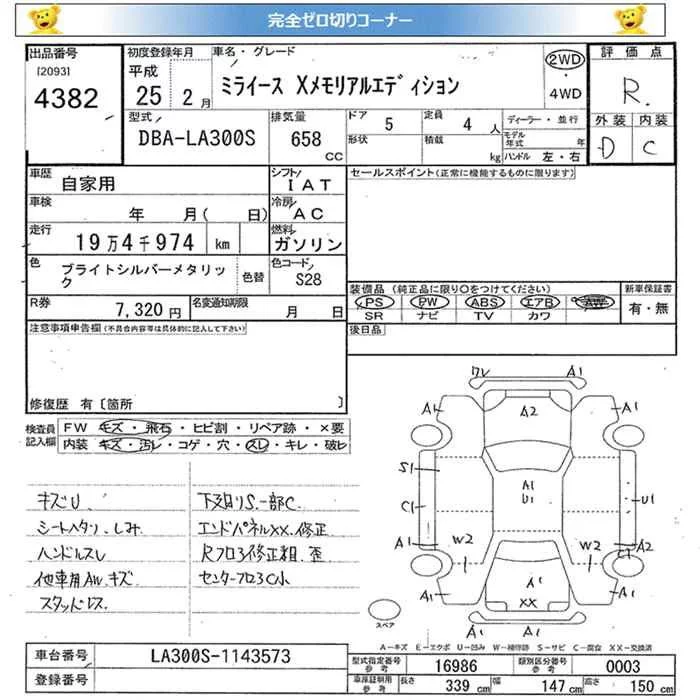 完全ゼロ切りコーナー
出品番号 初度登録年月 車名・グレード 評価点
[2093] 平成 ミライース Xメモリアルエディション 2WD R.
4382 25 2月 ・4WD 外装 内装
型式 排気量 ドア 5 定員 4 人 ディーラー・並行 D C
DBA-LA300S 658 CC 形状 積載 kg モデル年式 年 ハンドル 左・右
車歴 自家用 シフト IAT セールスポイント(正常に機能するものに限ります)
車検 年 月( 日) 冷房 AC
走行 19万4千974 km 燃料 ガソリン
色 ブライトシルバーメタリック 色替 色コード S28
装備品 (純正品に限り○をつけてください) 新車保証書
R券 7,320円 名変通知期限 月 日 PS PW ABS エアB AW 有・無
SR ナビ TV カワ
注意事項申告欄(不具合内容等は具体的に記入して下さい) 後日品
修復歴 有〔箇所 〕
検査員記入欄 FW キズ・飛石・ヒビ割・リペア跡・×要
内装 キズ・汚レ・コゲ・穴・スレ・キレ・破レ
キズU. 下廻りS.一部C.
シートヘタリ.しみ. エンドパネルXX.修正
ハンドルスレ Rフロア修正粗.歪
他車用AW.キズ センターフロア C小
スタッドレス
ワレ A1
A1 A2 A1
S1 A1 U1
C1 U1
A1 W2 W2 A2
C1
A1
A1 XX A1
A1 A1
スペア
A-キズ E-エクボ U-凹み W-補修跡 S-サビ C-腐食 XX-交換済
車台番号 LA300S-1143573 型式指定番号 参考 16986 類別区分番号 参考 0003
登録番号 車庫証明用 参考 長さ 339 cm 幅 147 cm 高さ 150 cm